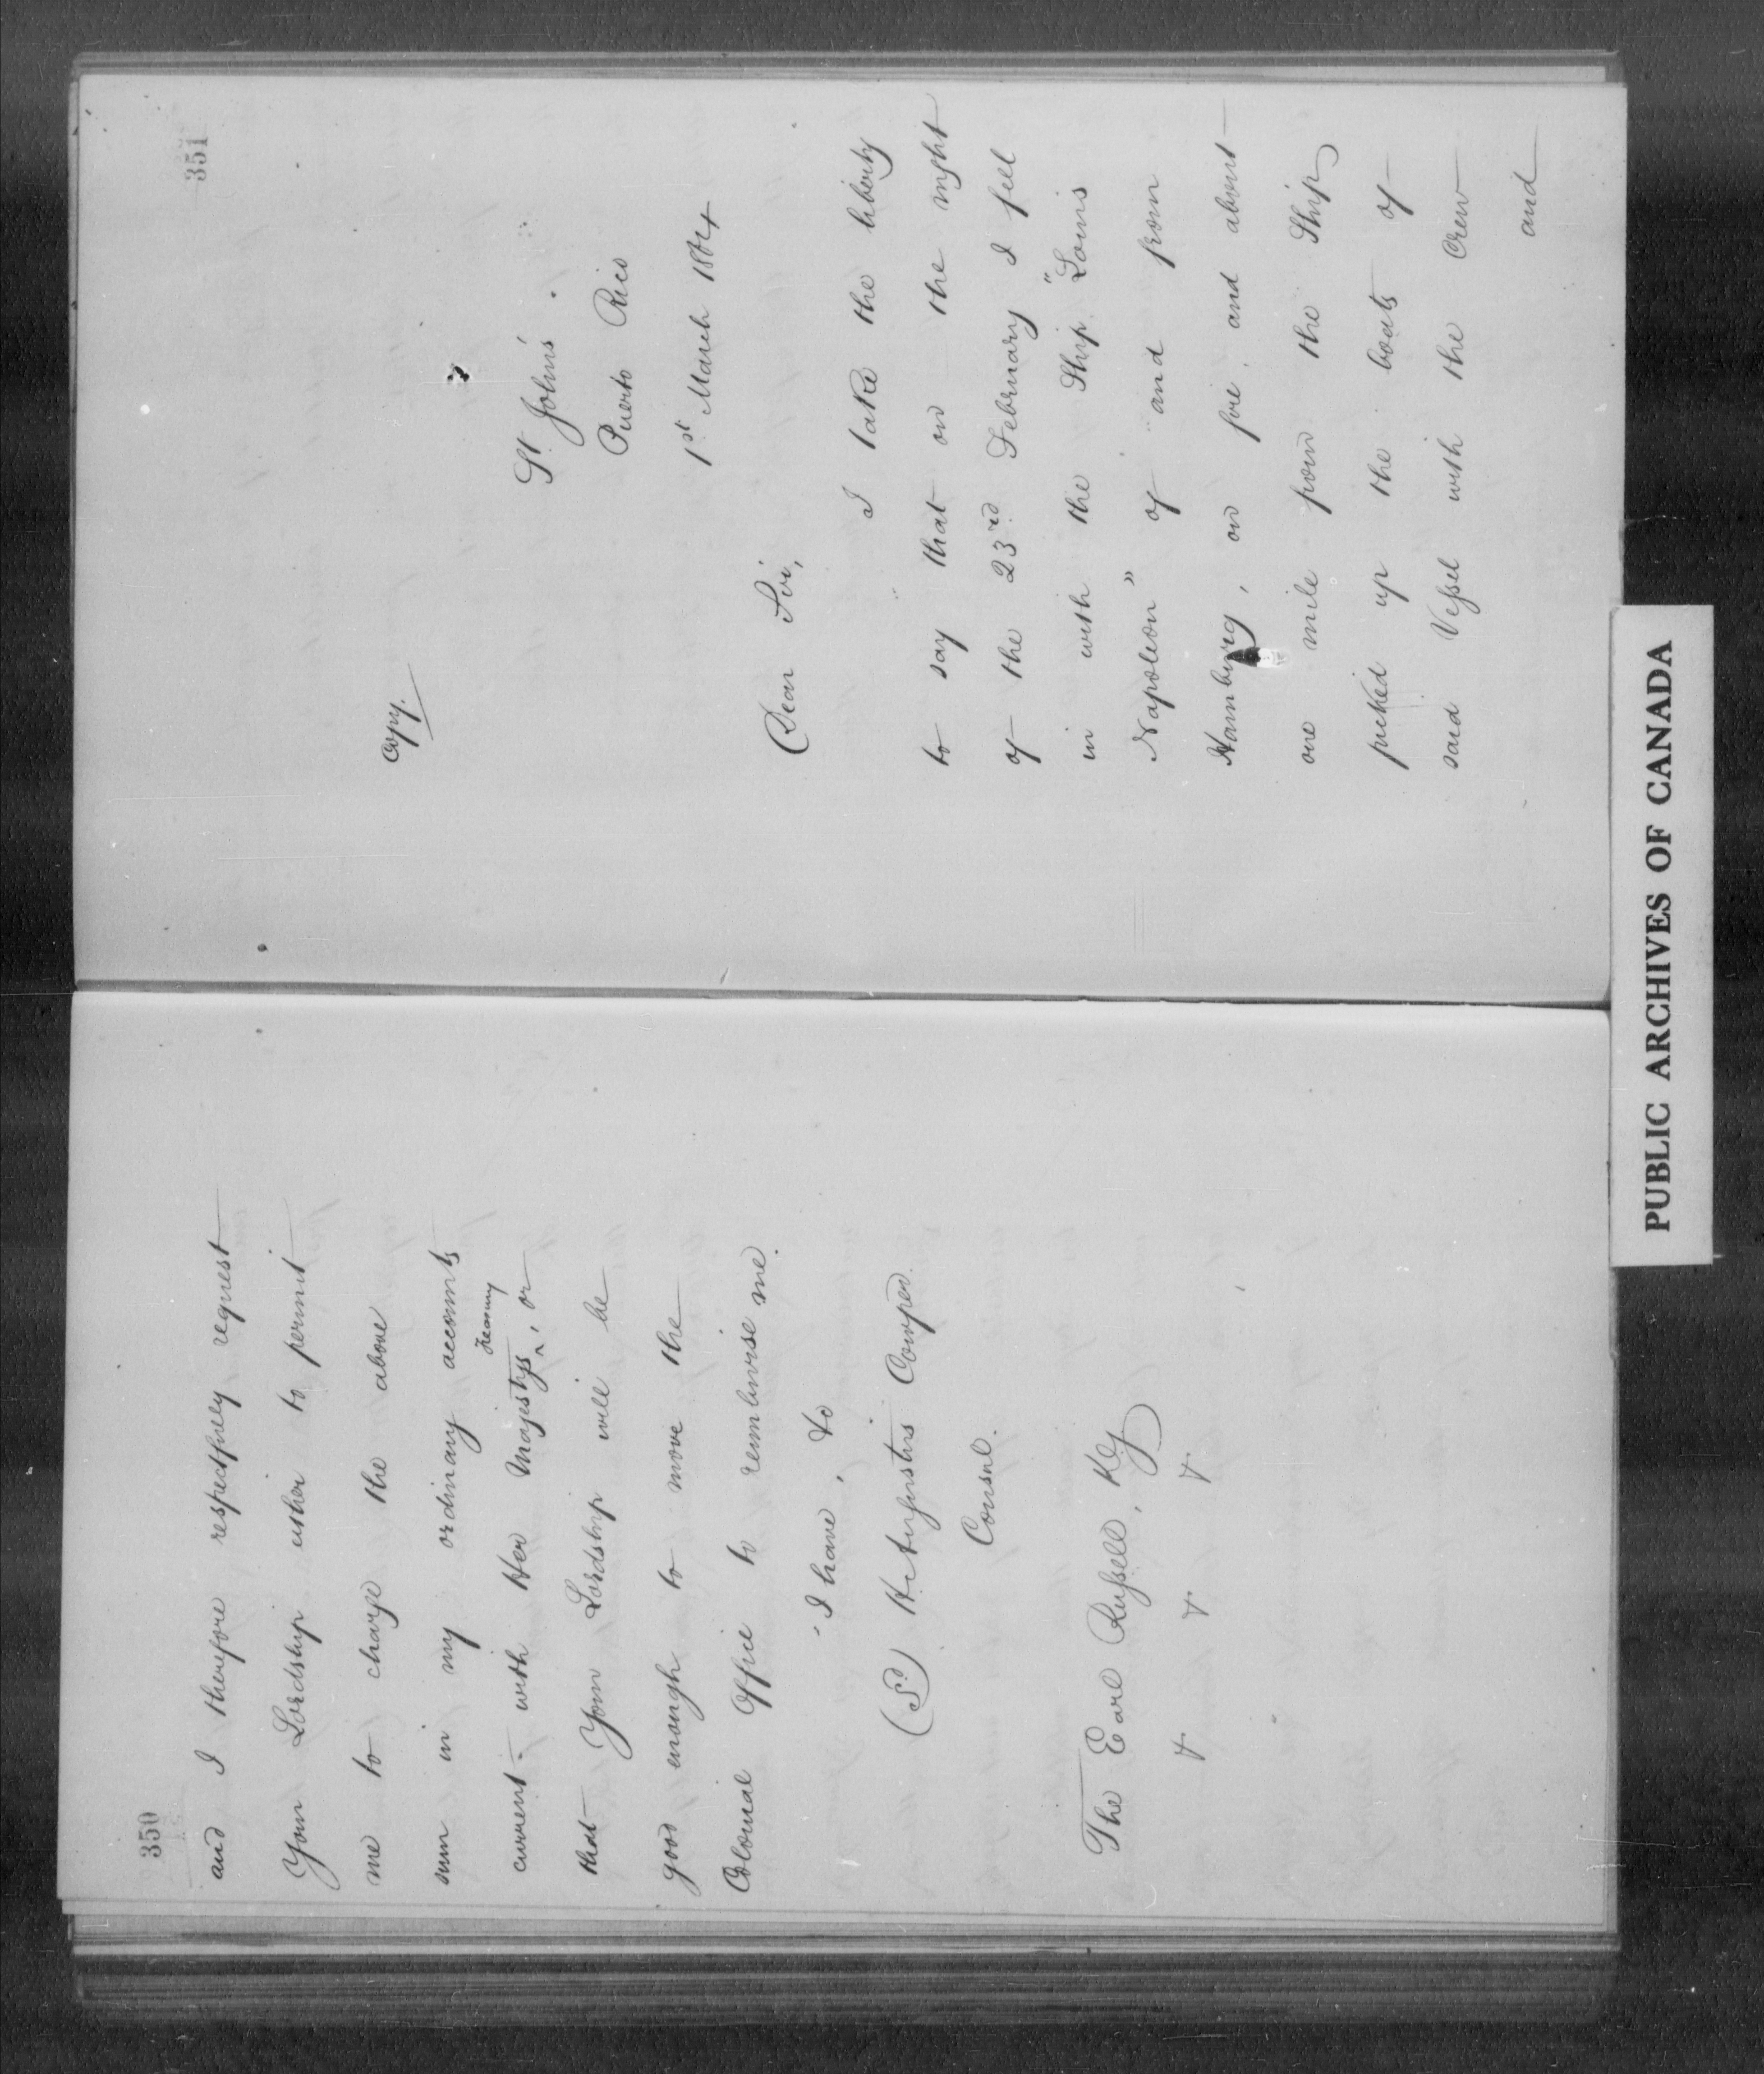 350
and I therefore respectfully request
Your Lordship either to permit
me to charge the above
sum in my ordinary accounts
current with Her Majestys Treasury, or
that Your Lordship will be
good enough to move the
Colonial Office to reimburse me.
I have, &c
(Sd) Augustus Cowper.
Consul.
The Earl Russell, KG
& & &
351
Copy.
St. John's.
Puerto Rico
1st March 1864
Dear Sir,
I take the liberty
to say that on the night
of the 23rd February I fell
in with the Ship "Louis
Napoleon" of and from
Hamburg, on fire, and about
one mile from the Ship
picked up the boats of
said Vessel with the Crew
and
PUBLIC ARCHIVES OF CANADA